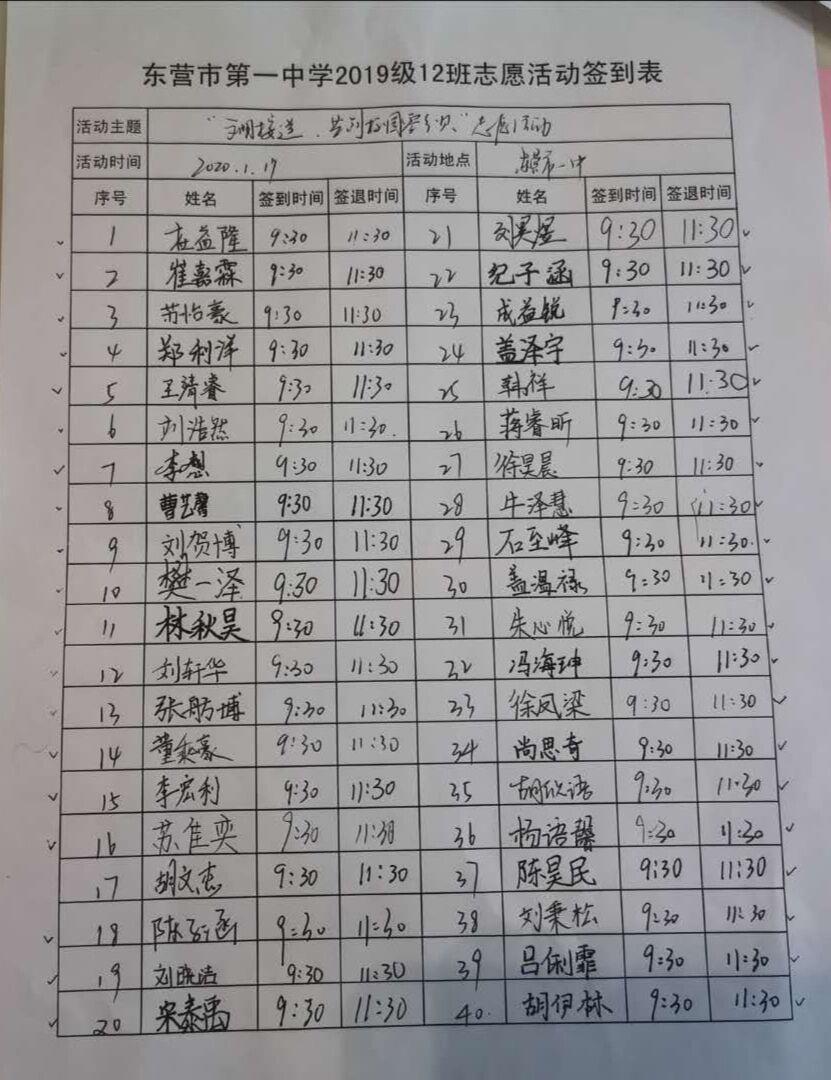 东营市第一中学2019级12班志愿活动签到表
活动主题 "文明接送、共创校园" 志愿活动
活动时间 2020.1.17 活动地点 东营市一中
序号 姓名 签到时间 签退时间 序号 姓名 签到时间 签退时间
1 益隆 9:30 11:30 21 刘昊煜 9:30 11:30
2 崔嘉霖 9:30 11:30 22 纪子涵 9:30 11:30
3 苏怡豪 9:30 11:30 23 成益锐 9:30 11:30
4 郑利洋 9:30 11:30 24 盖泽宇 9:30 11:30
5 王清睿 9:30 11:30 25 韩祥 9:30 11:30
6 刘浩然 9:30 11:30. 26 蒋睿昕 9:30 11:30
7 李想 9:30 11:30 27 徐昊晨 9:30 11:30
8 曹艺馨 9:30 11:30 28 牛泽慧 9:30 11:30
9 刘贺博 9:30 11:30 29 石至峰 9:30 11:30.
10 樊一泽 9:30 11:30 30 盖温禄 9:30 11:30
11 林秋昊 9:30 11:30 31 朱心悦 9:30 11:30
12 刘轩华 9:30 11:30 32 冯海珅 9:30 11:30
13 张舫博 9:30 11:30 33 徐凤梁 9:30 11:30
14 董乘豪 9:30 11:30 34 尚思奇 9:30 11:30
15 李宏利 9:30 11:30 35 胡欣语 9:30 11:30
16 苏佳奕 9:30 11:30 36 杨语馨 9:30 11:30
17 胡文杰 9:30 11:30 37 陈昊民 9:30 11:30
18 陈涵 9:30 11:30 38 刘秉松 9:30 11:30
19 刘晓洁 9:30 11:30 39 吕俐霏 9:30 11:30
20 宋泰禹 9:30 11:30 40. 胡伊林 9:30 11:30